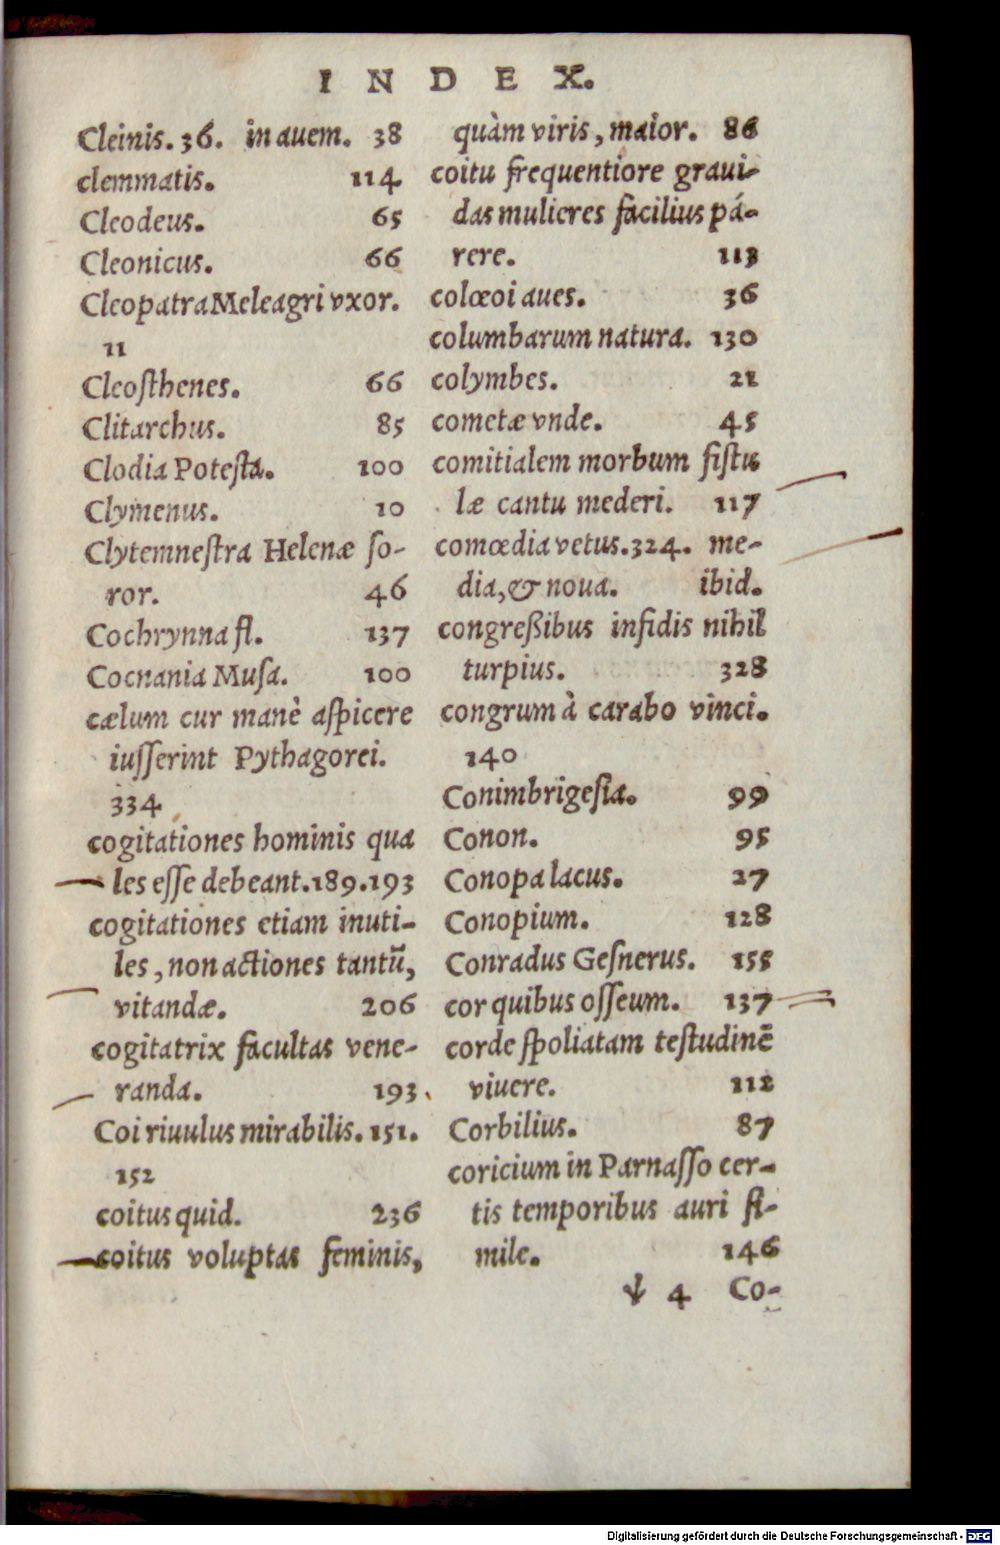 INDEX.
Cleinis. 36. in auem. 38
clemmatis. 114
Cleodeus. 65
Cleonicus. 66
Cleopatra Meleagri vxor.
11
Cleosthenes. 66
Clitarchus. 85
Clodia Potesta. 100
Clymenus. 10
Clytemnestra Helenæ so-
ror. 46
Cochrynna fl. 137
Cocnania Musa. 100
cælum cur manè aspicere
iusserint Pythagorei.
334
cogitationes hominis qua
les esse debeant. 189. 193
cogitationes etiam inuti-
les, non actiones tantū,
vitandæ. 206
cogitatrix facultas vene-
randa. 193
Coi riuulus mirabilis. 151.
152
coitus quid. 236
coitus voluptas feminis,
quàm viris, maior. 86
coitu frequentiore graui-
das mulieres facilius pá-
rere. 113
colœoi aues. 36
columbarum natura. 130
colymbes. 21
cometæ vnde. 45
comitialem morbum fistu
læ cantu mederi. 117
comœdia vetus. 324. me-
dia, & noua. ibid.
congreßibus infidis nihil
turpius. 328
congrum à carabo vinci.
140
Conimbrigesia. 99
Conon. 95
Conopa lacus. 27
Conopium. 128
Conradus Gesnerus. 155
cor quibus osseum. 137
corde spoliatam testudinē
viuere. 112
Corbilius. 87
coricium in Parnasso cer-
tis temporibus auri si-
mile. 146
4 Co-
Digitalisierung gefördert durch die Deutsche Forschungsgemeinschaft - DFG